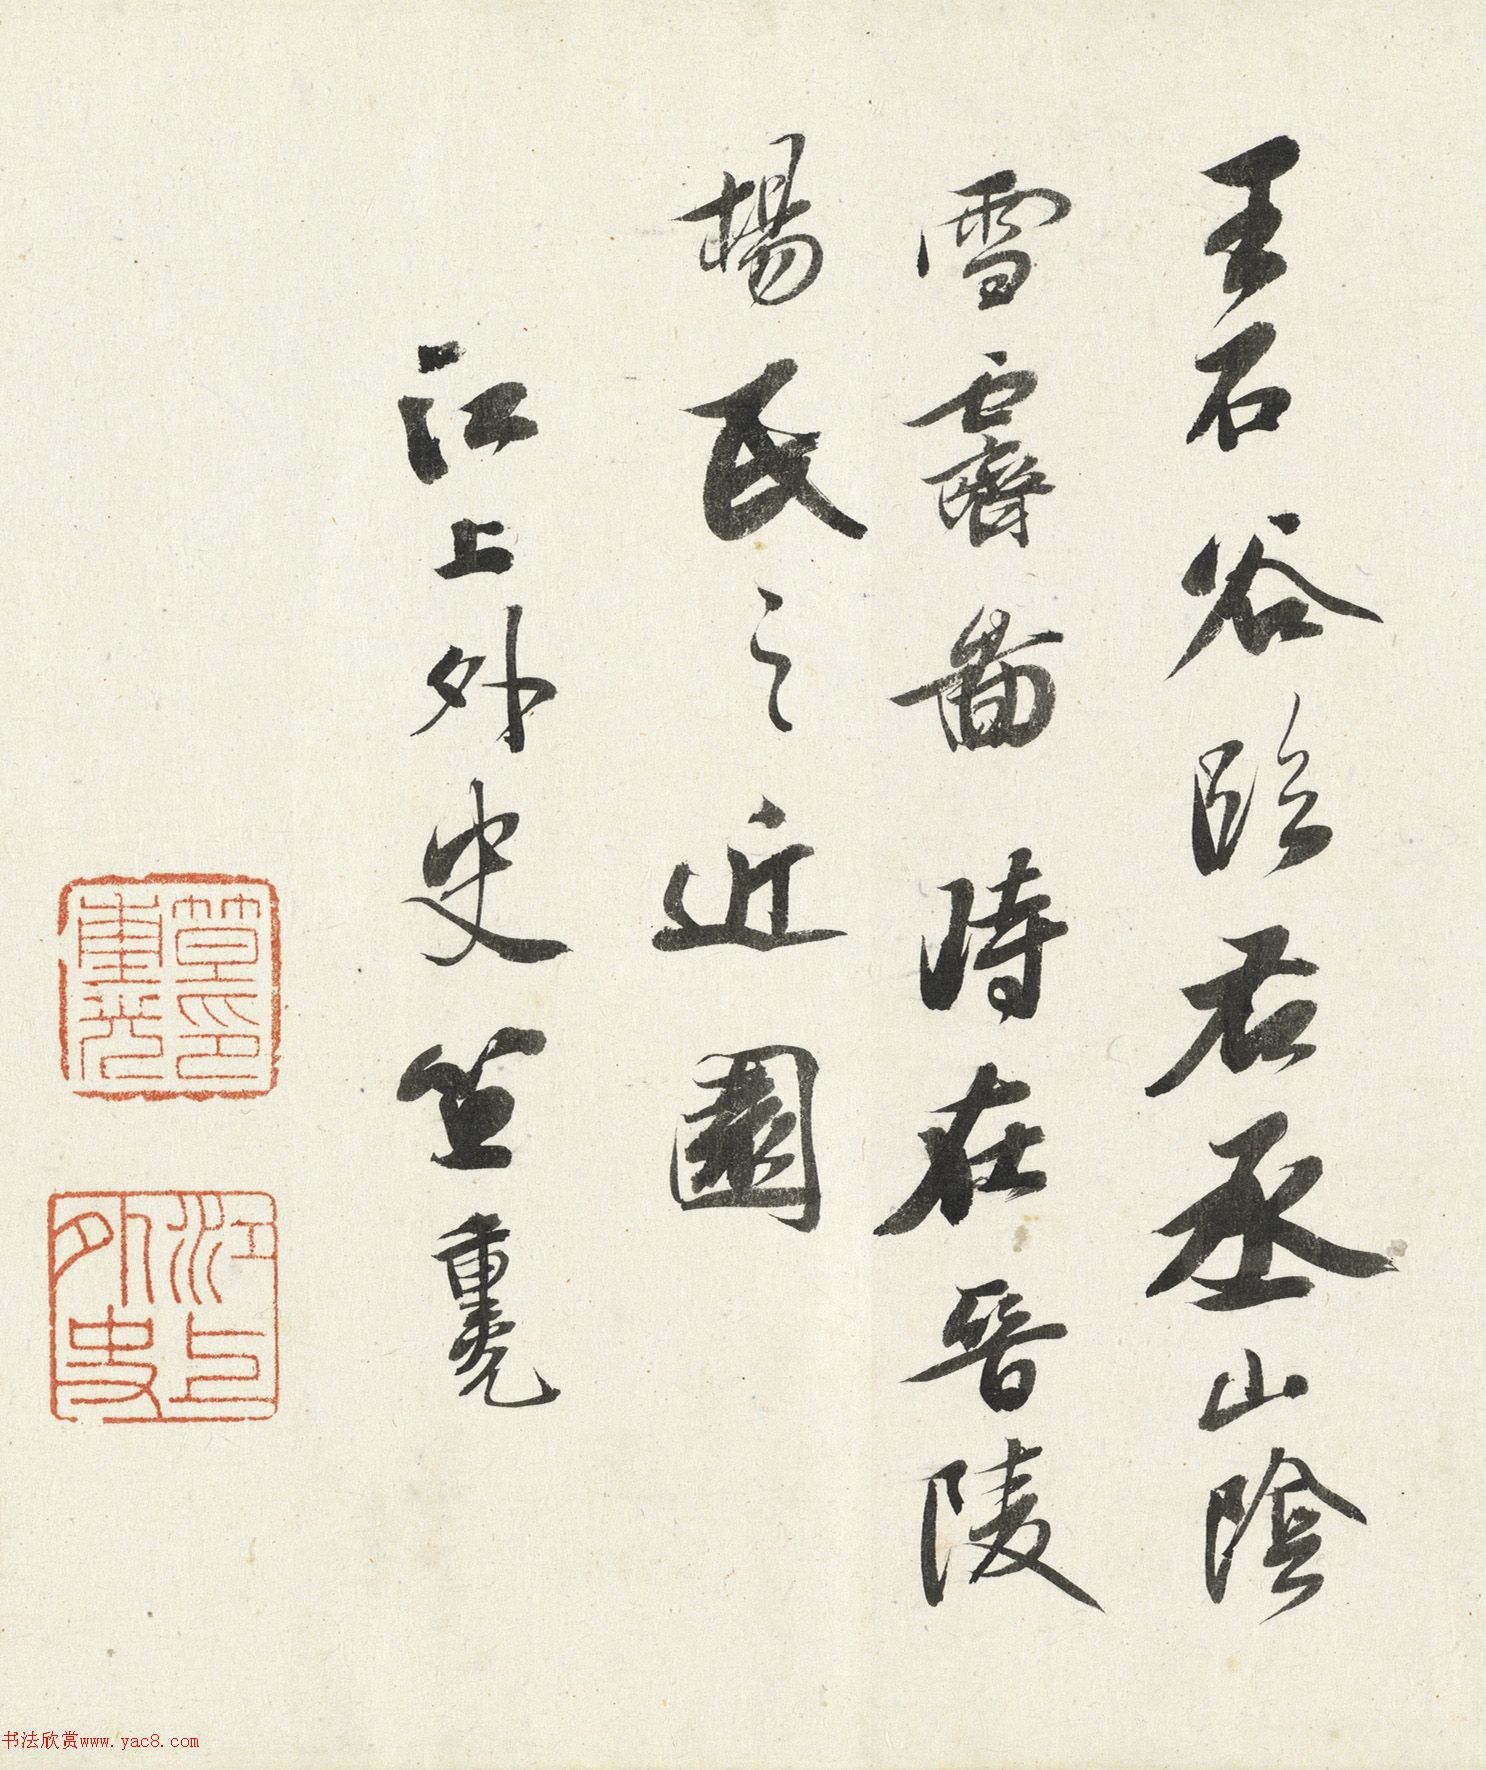 王石谷臨右丞山陰
雪霽圖時在晉陵
楊氏之近園
江上外史笪重光
笪重光印
江上外史
书法欣赏www.yac8.com